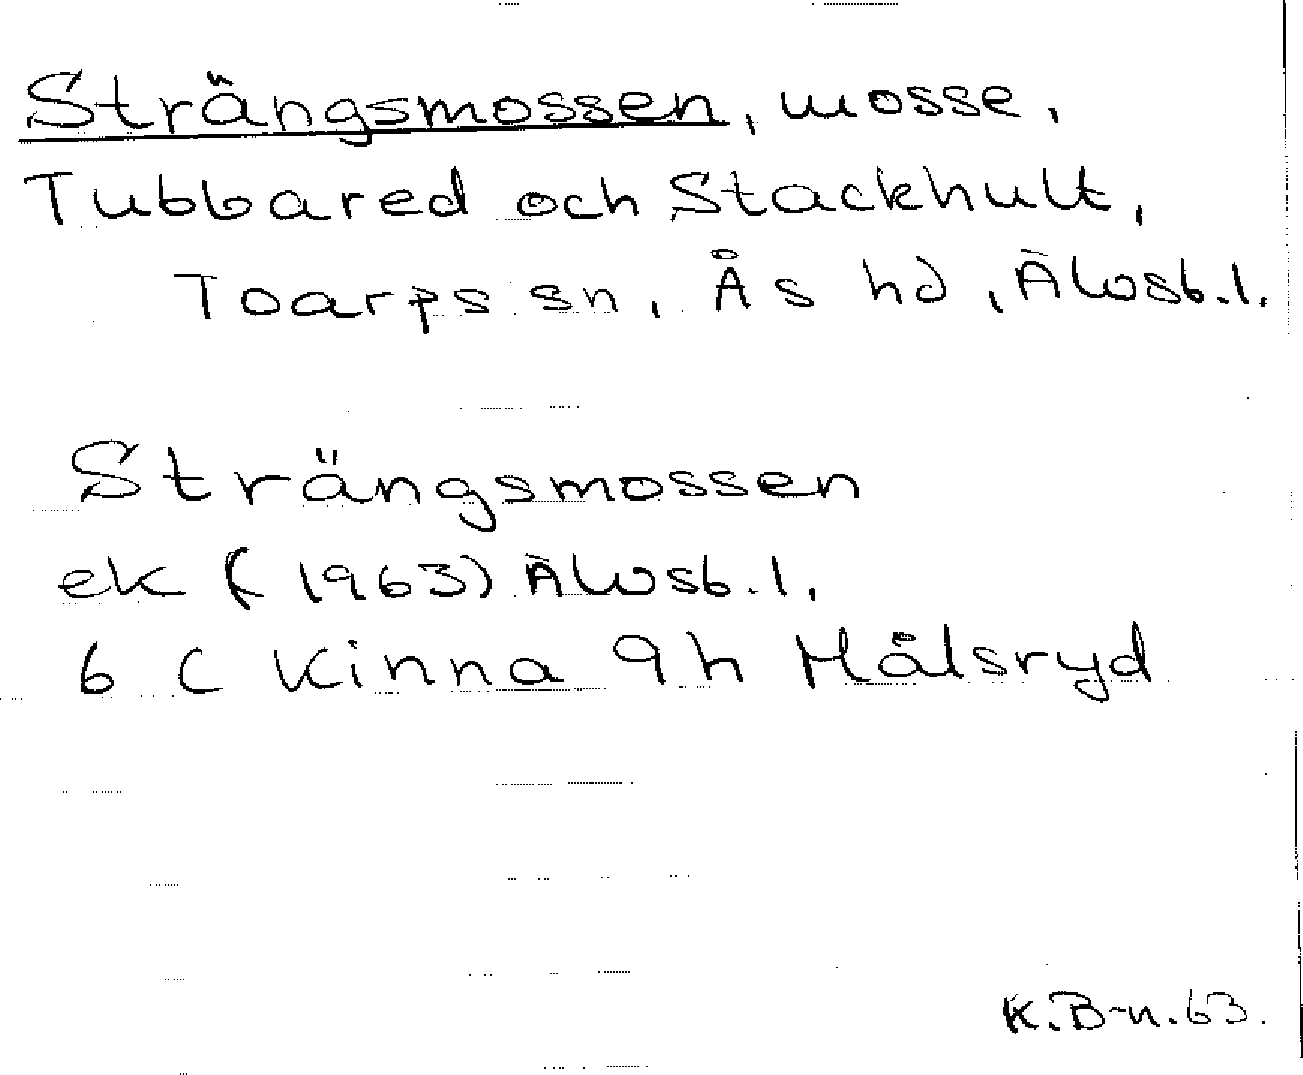 Strängsmossen, mosse,
Tubbared och Stackhult,
Toarps sn, Ås hd, Älvsb.l.
Strängsmossen
ek (1963) Älvsb.l.
6 C Kinna 9h Målsryd
K.B-n.63.